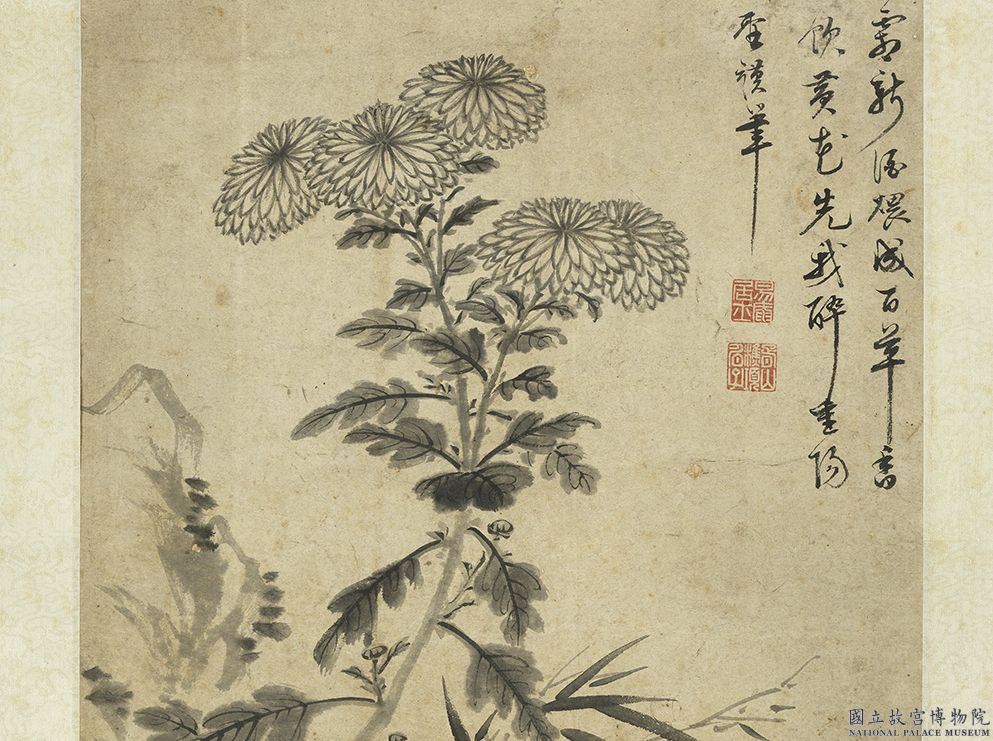 新酒煖成百草香
飲黄花先我醉重陽
聖謨筆
國立故宮博物院
NATIONAL PALACE MUSEUM